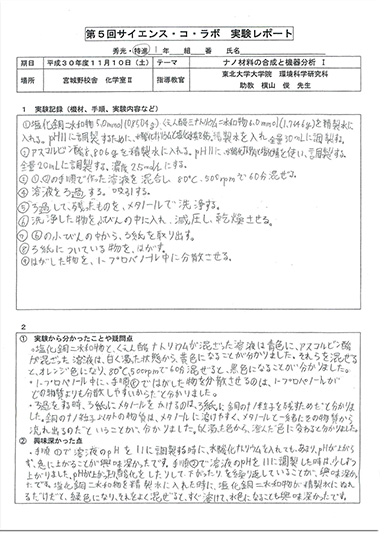 第５回サイエンス・コ・ラボ　実験レポート
秀光・特進　1年　組　番　氏名
期日　平成３０年１１月１０日（土）　テーマ　ナノ材料の合成と機器分析 Ⅰ
場所　宮城野校舎　化学室Ⅱ　指導教官　東北大学大学院　環境科学研究科
助教　横山　俊　先生
1　実験記録（機材、手順、実験内容など）
①塩化銅二水和物5.0mmol(0.8524g)とくえん酸三ナトリウム二水和物6.0mmol(1.7646g)を精製水に
入れる。pH11に調製するために、水酸化ナトリウムと塩酸を使う。精製水を入れ、全量30mLに調製する。
②アスコルビン酸 8.806gを精製水に入れる。pH11に水酸化ナトリウムと塩酸を使い、調製する。
全量20mLに調製する。濃度2.5mol/Lにする。
③①、②の手順で作った溶液を混合し 80℃、505rpmで60分混ぜる。
④溶液をろ過する。吸引する。
⑤ろ過して、残ったものを、メタノールで洗浄する。
⑥洗浄した物を小びんの中に入れ、減圧し、乾燥させる。
⑦⑥の小びんの中から、ろ紙を取り出す。
⑧ろ紙についている物を、はがす。
⑨はがした物を、1-プロパノール中に分散させる。
2
①　実験から分かったことや疑問点
・塩化銅二水和物と、くえん酸ナトリウムが混ざった溶液は青色に、アスコルビン酸
が混ざった溶液は、白く濁った状態から、黄色になることが分かりました。それらを混ぜる
と、オレンジ色になり、80℃、505rpmで60分混ぜると、黒色になることが分かりました。
・1-プロパノール中に、手順⑨ではがした物を分散させるのは、1-プロパノールが
どの物質よりも分散しやすいからだと分かりました。
・ろ過をする時、ろ紙にメタノールをかけるのは、ろ紙に銅のナノ粒子を残すためだと分かりまし
た。銅のナノ粒子以外の物質は、メタノールに溶けやすく、メタノールと一緒に
流れ出るのだということが、分かりました。
②　興味深かった点
・手順①で溶液のpHを11に調製する時に、水酸化ナトリウムを入れても、あまりpHが上がら
ず、色に上がることが興味深かったです。手順②で溶液のpHを11に調製した時は、少しずつ
上がりました。
です。塩化銅二水和物を精製水に入れた時に、塩化銅二水和物が精製水にぬれ
るだけだと、緑色になり、それをよく混ぜると、すぐ溶けて、水色になることも興味深かったです。